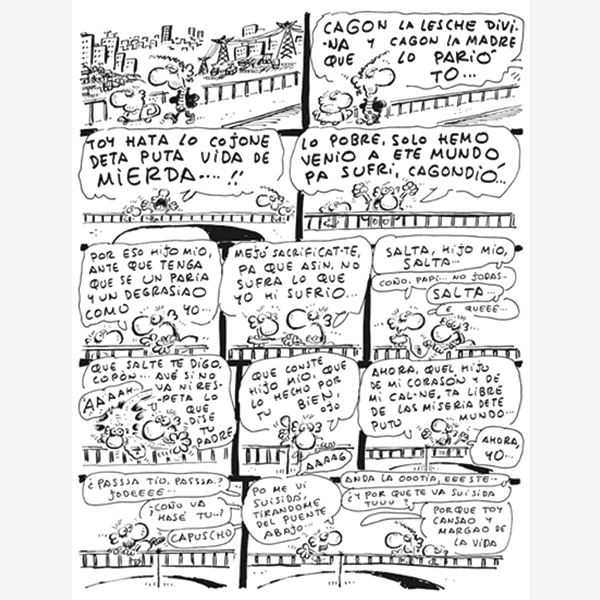 CAGON LA LESCHE DIVI-
NA Y CAGON LA MADRE
QUE LO PARIÓ
TO...
TOY HATA LO COJONE
DETA PUTA VIDA DE
MIERDA....!!
LO POBRE, SOLO HEMO
VENIO A ETE MUNDO
PA SUFRI, CAGONDIÓ...
POR ESO HIJO MIO,
ANTE QUE TENGA
QUE SE UN PARIA
Y UN DEGRASIAO
COMO YO...
MEJÓ SACRIFICAT-TE,
PA QUE ASIN, NO
SUFRA LO QUE
YO HI SUFRIO...
SALTA, HIJO MIO,
SALTA...
COÑO, PAPI... NO JODAS..
SALTA...
E QUEEE...
QUE SALTE TE DIGO,
COPÓN... AUÉ SI NO
VA NI RES-
-PETA LO
QUE
DISE
TU
PADRE
AAAAH..
QUE CONSTE
HIJO MIO, QUE
LO HECHO POR
TU BIEN,
OJO
AAAAG
AHORA, QUEL HIJO
DE MI CORASÓN Y DE
MI CAL-NE, TA LIBRE
DE LAS MISERIA DETE
PUTU MUNDO...
AHORA,
YO...
¿PASSSA TIO, PASSSA.?
JODEEEE...
¡COÑO VA
HASÉ TU..?
CAPUSCHO
PO ME VI
SUISIDÁ,
TIRANDOME
DEL PUENTE
ABAJO...
ANDA LA OOOTIA, EEESTE..
¿Y POR QUE TE VA SUISIDA
TUUU?
PORQUE TOY
CANSAO Y
MARGAO DE
LA VIDA